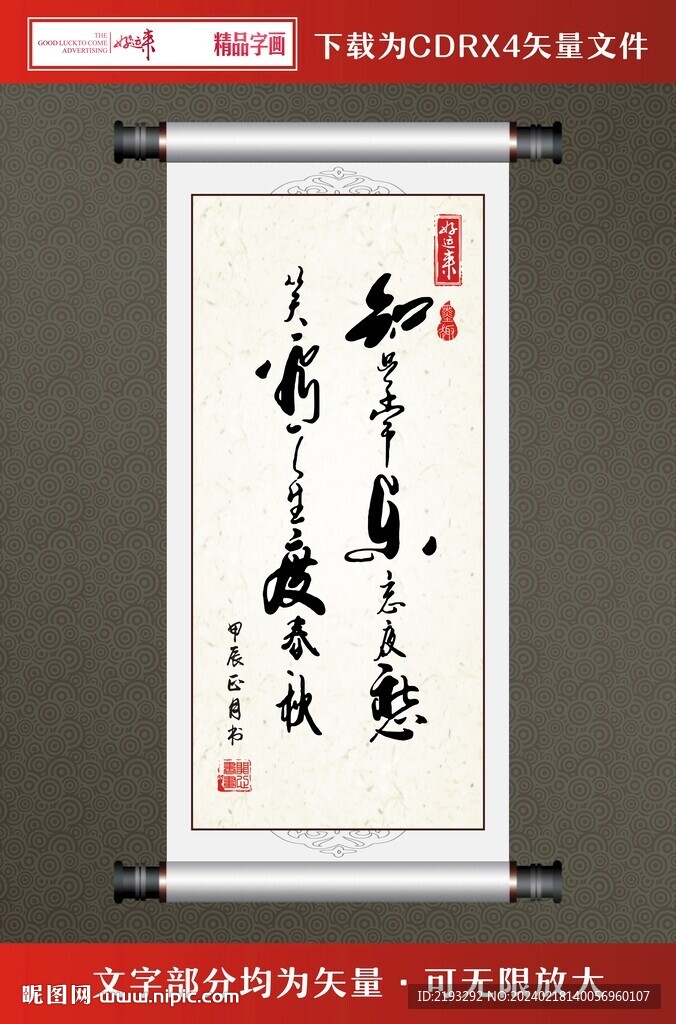 THE
GOOD LUCK TO COME
ADVERTISING
好运来
精品字画
下载为CDRX4矢量文件
好运来
知足常乐忘愁
笑人生度春秋
甲辰正月书
文字部分均为矢量·可无限放大
昵图网 www.nipic.com
ID:2193292 NO:20240218140056960107